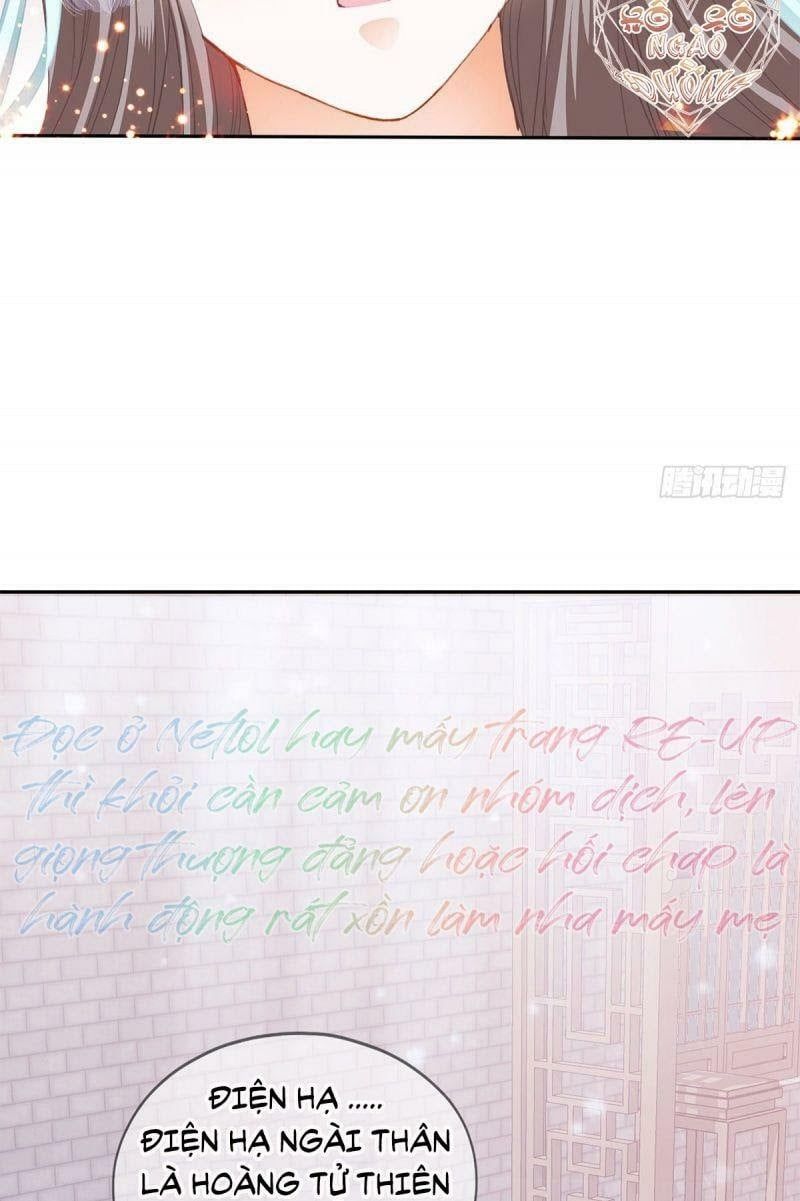 HỔ HỔ
NGÀO
ĐƯỜNG
腾讯动漫
Đọc ở Netlol hay mấy trang RE-UP
thì khỏi cần cảm ơn nhóm dịch, lên
giọng thượng đẳng hoặc hối chap là
hành động rất xồn làm nha mấy mẹ
ĐIỆN HẠ .....
ĐIỆN HẠ NGÀI THÂN
LÀ HOÀNG TỬ THIÊN